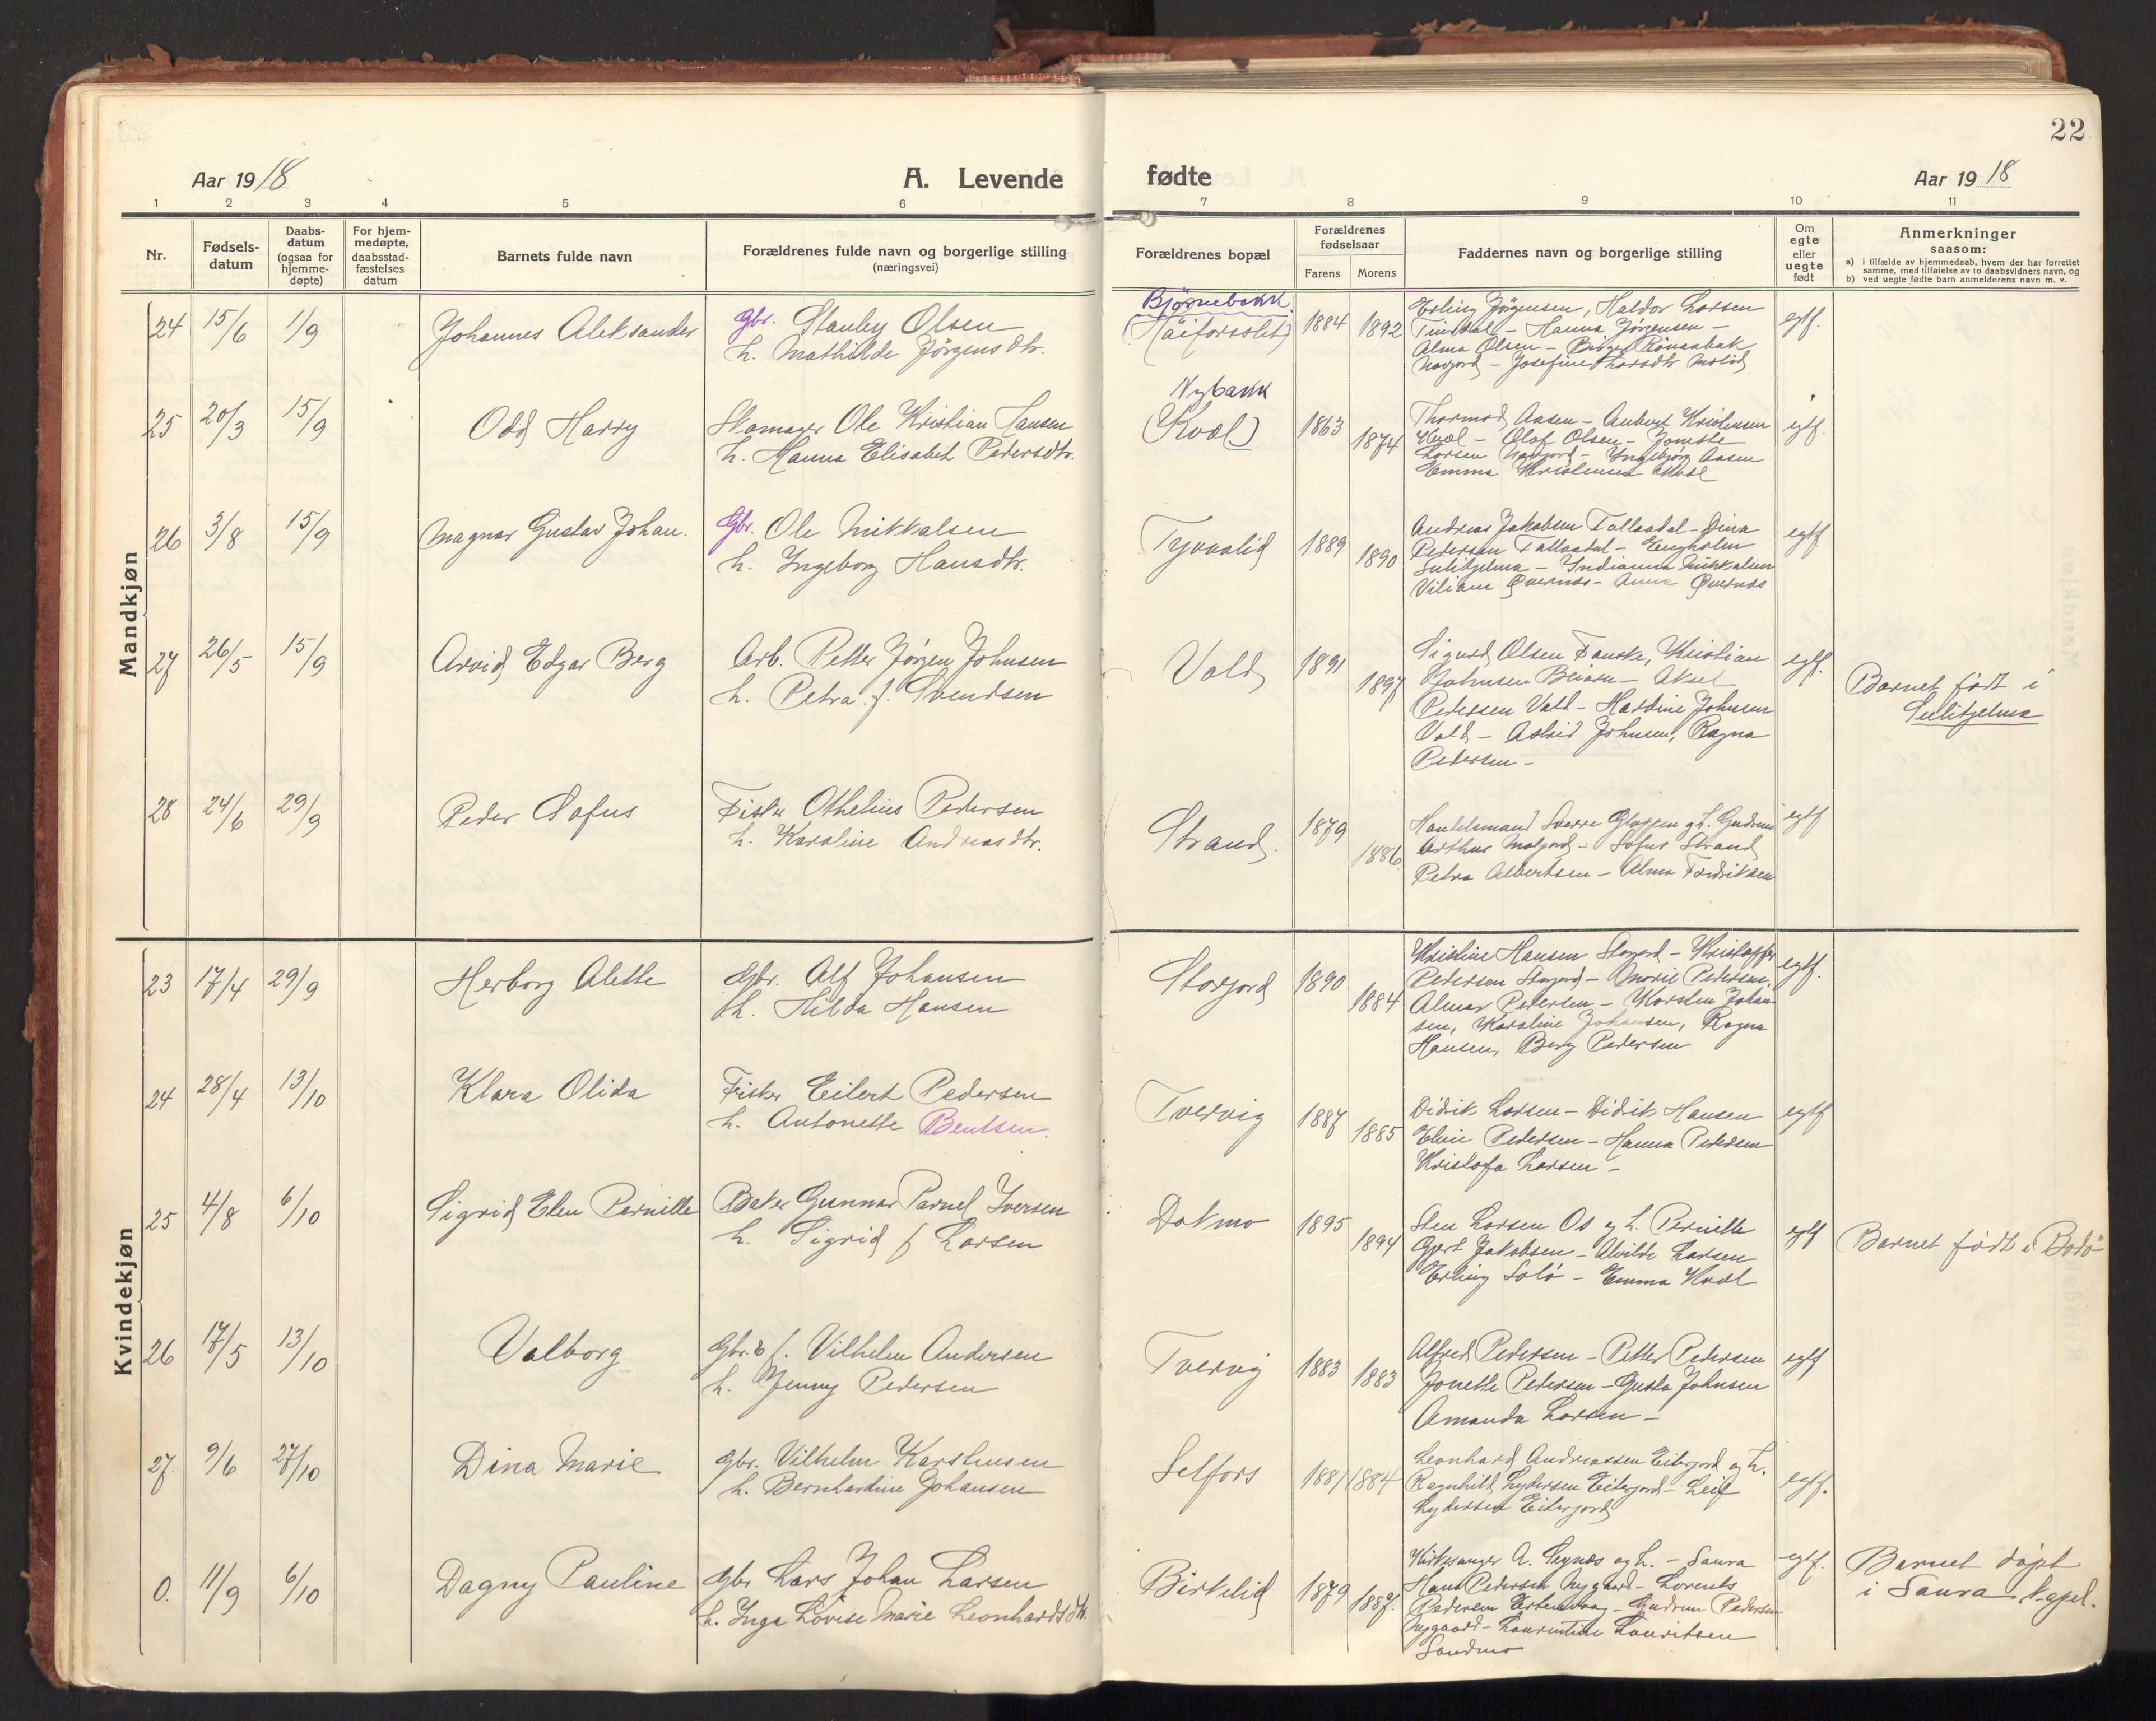 22
Aar 1918
A. Levende
fødte
Aar 1918
1 2 3 4 5 6 7 8 9 10 11
Nr.
Fødsels-
datum
Daabs-
datum
(ogsaa for
hjemme-
døpte)
For hjem-
medøpte,
daabsstad-
fæstelses
datum
Barnets fulde navn
Forældrenes fulde navn og borgerlige stilling
(næringsvei)
Forældrenes bopæl
Forældrenes
fødselsaar
Farens Morens
Faddernes navn og borgerlige stilling
Om
egte
eller
uegte
født
Anmerkninger
saasom:
a) i tilfælde av hjemmedaab, hvem der har forrettet
samme, med tilføielse av to daabsvidners navn, og
b) ved uegte fødte barn anmelderens navn m. v.
Mandkjøn
24 15/6 1/9 Johannes Aleksander
Gbr. Stanley Olsen
h. Mathilde Jørgensdtr.
Bjørnebakk
(Håiforsslet)
1884 1892
Erling Jørgensen, Haldor Larsen
Hanna Jørgensen –
Alma Olsen – Birger
Josefine Larsdtr
egtf.
25 20/3 15/9 Odd Harry
Skomager Ole Kristian Hansen
h. Hanna Elisabet Pedersdtr.
Nybakk
(Kvæl)
1863 1874
Thormod Aasen – Aubert Kristensen
Kvæl – Olaf Olsen – Jonette
Larsen – Yngebjørg Aasen
Emma Kristensen Kvæl
egtf.
26 3/8 15/9 Magnar Gustav Johan.
Gbr. Ole Mikkalsen
h. Ingeborg Hansdtr.
Tyvvalid
1889 1890
Andreas Jakobsen Tollaadal – Dina
Pedersen Tollaadal – Engholm
Sulitjelma – Indianna Mikkalsen
Viliam Øvernes – Anna Øvernes
egtf
27 26/5 15/9 Arvid Edgar Berg
Arb. Petter Jørgen Johnsen
h. Petra f. Svendsen
Vold
1891 1897
Sigurd Olsen Fauske, Kristian
Johnsen Beiarn – Aksel
Pedersen Vold – Hardine Johnsen
Vold – Astrid Johnsen, Ragna
Pedersen –
egtf.
Barnet født i
Sulitjelma
28 24/6 29/9 Peder Sofus
Fisker Othelius Pedersen
h. Karoline Andreasdtr.
Strand.
1879 1886
Handelsmand Sverre Gloppen og h. Gudrun
Arthur Moljord – Sofus Strand
Petra Albertsen – Alma Fredriksen
egtf
Kvindekjøn
23 17/4 29/9 Herborg Alette
Gbr. Alf Johansen
h. Hilda Hansen
Storjord
1890 1884
Kristine Hansen Storjord – Kristoffer
Pedersen Storjord – Pedersen.
Almar Pedersen – Karsten Johan-
sen, Karoline Johansen, Ragna
Hansen, Berg Pedersen
egtf.
24 28/4 13/10 Klara Olida
Fisker Eilert Pedersen
h. Antonette Bentsen.
Tvervig
1887 1885
Didrik Larsen – Didrik Hansen
Elvie Pedersen – Hanna Pedersen
Kristofa Larsen –
egtf
25 4/8 6/10 Sigrid Elen Pernille
Baker Gunnar Parnel Iversen
h. Sigrid f Larsen
Dokmo
1895 1894
Sten Larsen Os og h. Pernille
Gjert Jakobsen – Alvilde Larsen
Erling Solø – Emma Kvæl
egtf
Barnet født i Bodø
26 17/5 13/10 Valborg
Gbr. & f. Vilhelm Andersen
h. Jenny Pedersen
Tvervig
1883 1883
Alfred Pedersen – Petter Pedersen
Jonette Pedersen – Gusta Johnsen
Amanda Larsen –
egtf
27. 9/6 27/10 Dina Marie
Gbr. Vilhelm Karstensen
h. Bernhardine Johansen
Selfors
1881 1884
Leonhard Andreassen Eiterjord og h.
Ragnhild Lydersen Eiterjord – Leif
Lydersen Eiterjord
egtf.
0. 11/9 6/10 Dagny Pauline
Gbr Lars Johan Larsen
h. Inga Lovise Marie Leonhardsdtr.
Birkelid
1879 1887.
Kirkesanger A. og h. – Saura
Hans Pedersen Nygaard – Lorents
Pedersen – Gudrun Pedersen
Nygaard – Laurentine Lauritsen
Sandmo
egtf.
Barnet døpt
i Saura kapel.